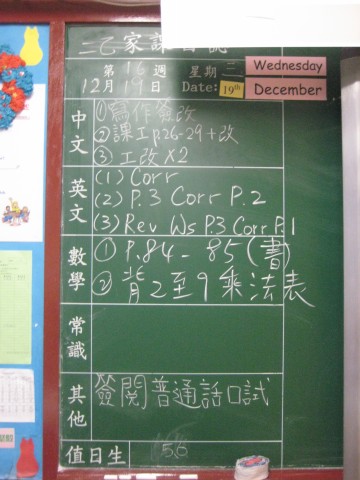 二乙家課日誌
第16週 星期三 Wednesday
12月19日 Date: 19th December
中文
①寫作簽改
②課工p26-29+改
③工改X2
英文
(1) Corr
(2) P.3 Corr P.2
(3) Rev Ws P.3 Corr P.1
數學
①P.84-85(書)
②背2至9乘法表
常識
其他
簽閱普通話口試
值日生
5,6